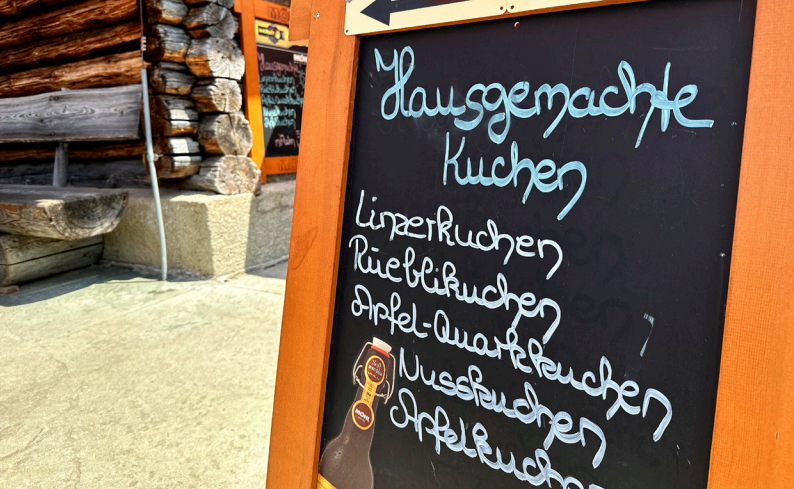 Hausgemachte
Kuchen
Linzerkuchen
Rüeblikuchen
Apfel-Quarkkuchen
Nusskuchen
Apfelkuchen
MÖHL